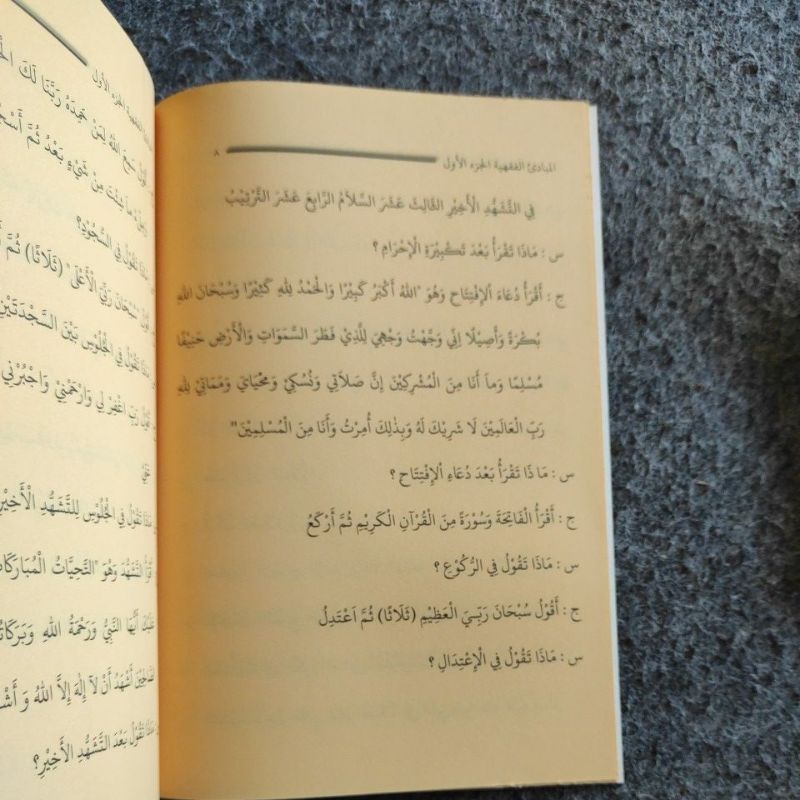 المبادئ الفقهية الجزء الأول ٨
فِي التَّشَهُّدِ الْأَخِيْرِ الثَّالِثَ عَشَرَ السَّلَامُ الرَّابِعَ عَشَرَ التَّرْتِيْبُ
س : مَاذَا تَقْرَأُ بَعْدَ تَكْبِيْرَةِ الْإِحْرَامِ ؟
ج : أَقْرَأُ دُعَاءَ الإِفْتِتَاحِ وَهُوَ "اللهُ أَكْبَرُ كَبِيْرًا وَالْحَمْدُ لِلّٰهِ كَثِيْرًا وَسُبْحَانَ اللهِ
بُكْرَةً وَأَصِيْلًا اِنِّي وَجَّهْتُ وَجْهِيَ لِلَّذِيْ فَطَرَ السَّمَوَاتِ وَالْأَرْضَ حَنِيْفًا
مُسْلِمًا وَمَا أَنَا مِنَ الْمُشْرِكِيْنَ إِنَّ صَلَاتِي وَنُسُكِيْ وَمَحْيَايَ وَمَمَاتِيْ لِلّٰهِ
رَبِّ الْعَالَمِيْنَ لَا شَرِيْكَ لَهُ وَبِذٰلِكَ أُمِرْتُ وَأَنَا مِنَ الْمُسْلِمِيْنَ"
س : مَا ذَا تَقْرَأُ بَعْدَ دُعَاءِ الإِفْتِتَاحِ ؟
ج : أَقْرَأُ الْفَاتِحَةَ وَسُوْرَةً مِنَ الْقُرْآنِ الْكَرِيْمِ ثُمَّ أَرْكَعُ
س : مَاذَا تَقُوْلُ فِي الرُّكُوْعِ ؟
ج : أَقُوْلُ سُبْحَانَ رَبِّيَ الْعَظِيْمِ (ثَلَاثًا) ثُمَّ اَعْتَدِلُ
س : مَاذَا تَقُوْلُ فِي الْإِعْتِدَالِ ؟
الجزء الأول
سَمِعَ اللهُ لِمَنْ حَمِدَهُ رَبَّنَا لَكَ
مَا شِئْتَ مِنْ شَيْءٍ بَعْدُ ثُمَّ
تَقُوْلُ فِي السُّجُوْدِ؟
"سُبْحَانَ رَبِّيَ الْأَعْلَى" (ثَلَاثًا) ثُمَّ
تَقُوْلُ فِي الْجُلُوْسِ بَيْنَ السَّجْدَتَيْنِ
رَبِّ اغْفِرْ لِي وَارْحَمْنِيْ وَاجْبُرْنِي
تَقُوْلُ فِي الْجُلُوْسِ لِلتَّشَهُّدِ الْأَخِيْرِ
التَّشَهُّدَ وَهُوَ "التَّحِيَّاتُ الْمُبَارَكَاتُ
عَلَيْكَ أَيُّهَا النَّبِيُّ وَرَحْمَةُ اللهِ وَبَرَكَاتُهُ
أَشْهَدُ أَنْ لَآ إِلٰهَ إِلَّا اللهُ وَ
تَقُوْلُ بَعْدَ التَّشَهُّدِ الْأَخِيْرِ؟